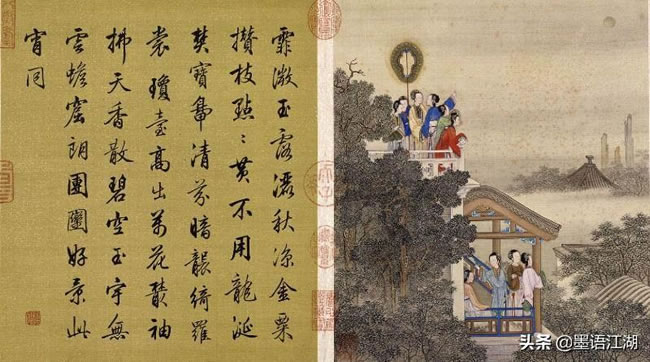 霏微玉露灑秋涼金粟
攢枝點〻黄不用龍涎
爇寶鼎清芬暗襲綺羅
裳瓊臺高出萬花叢袖
拂天香散碧空玉宇無
雲蟾窟朗團圞好景此
宵同
头条 @墨语江湖